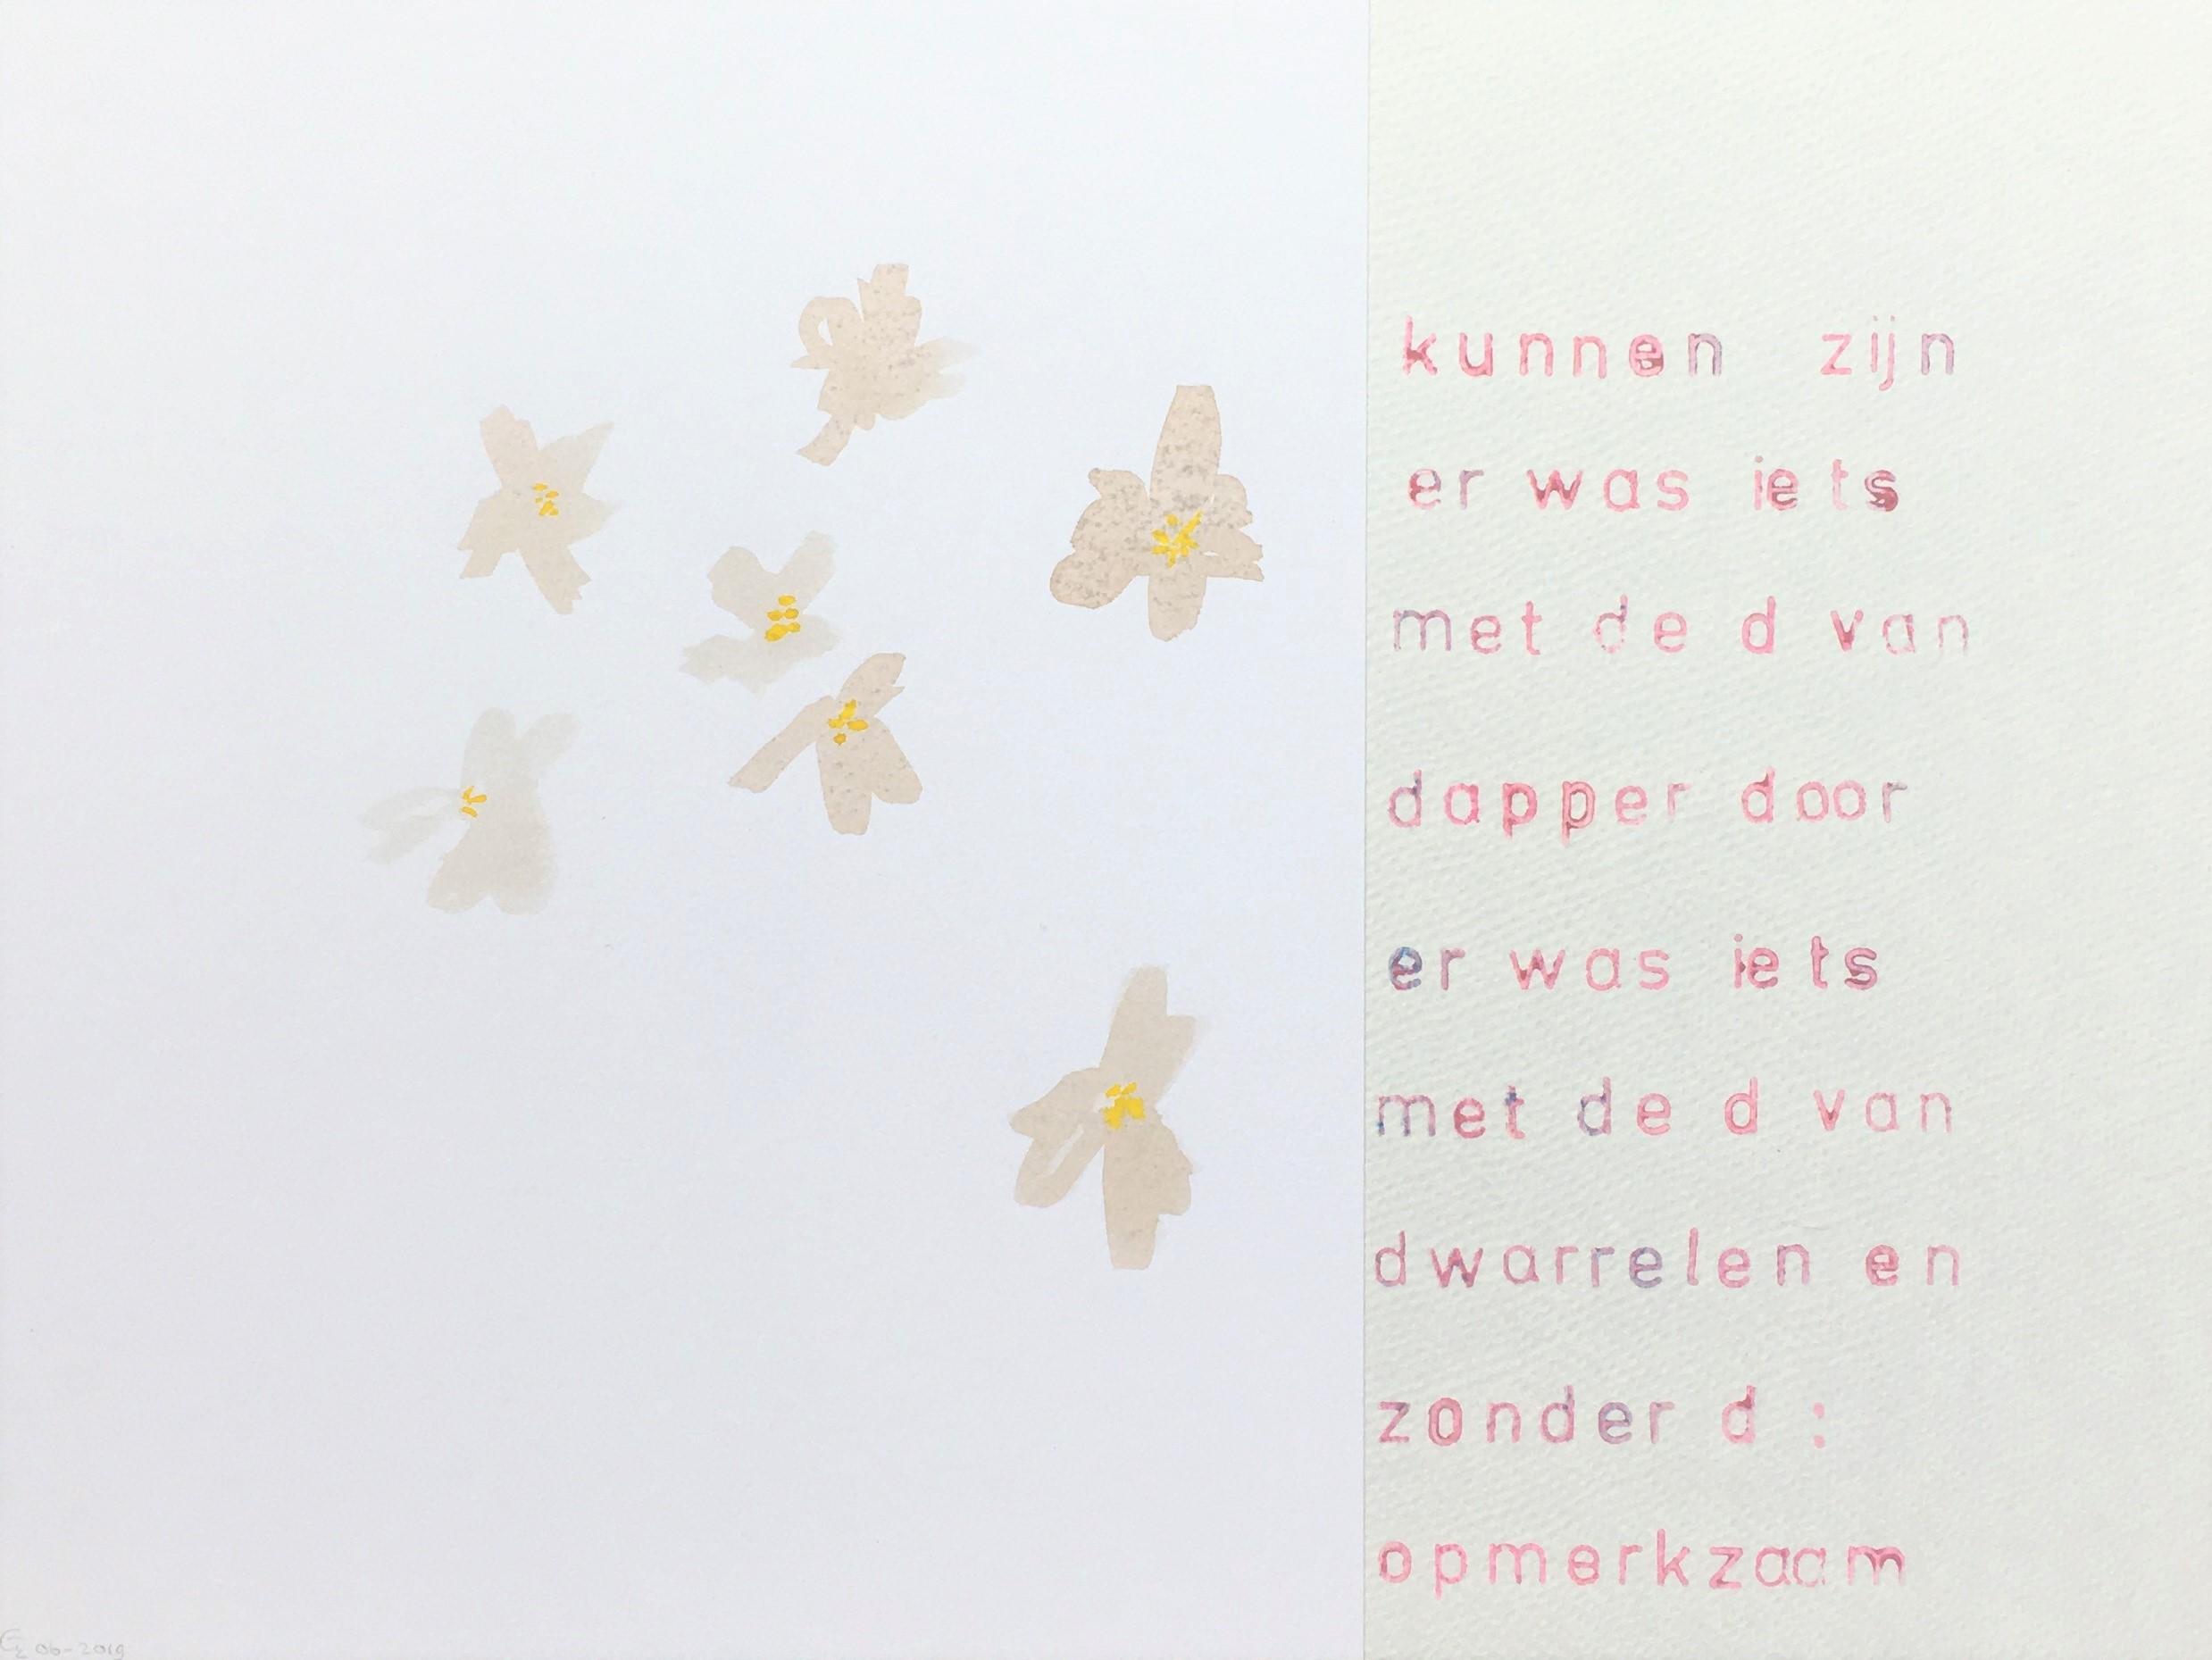 kunnen zijn
er was iets
met de d van
dapper door
er was iets
met de d van
dwarrelen en
zonder d :
opmerkzaam
06-2019